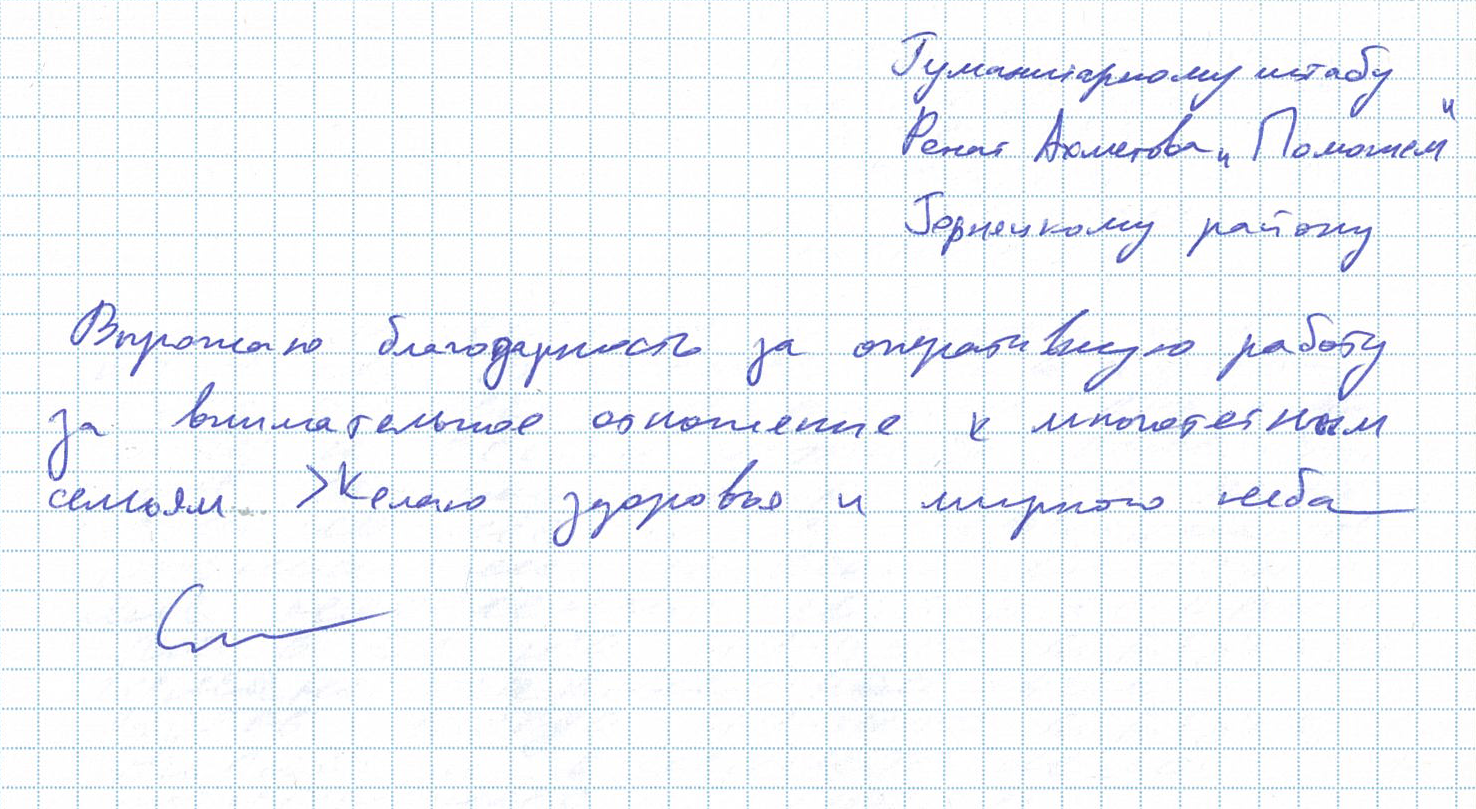 Гуманитарному штабу
Ренат Ахметова „Поможем"
Горняцкому району
Выражаю благодарность за оперативную работу
за внимательное отношение к многодетным
семьям. Желаю здоровья и мирного неба